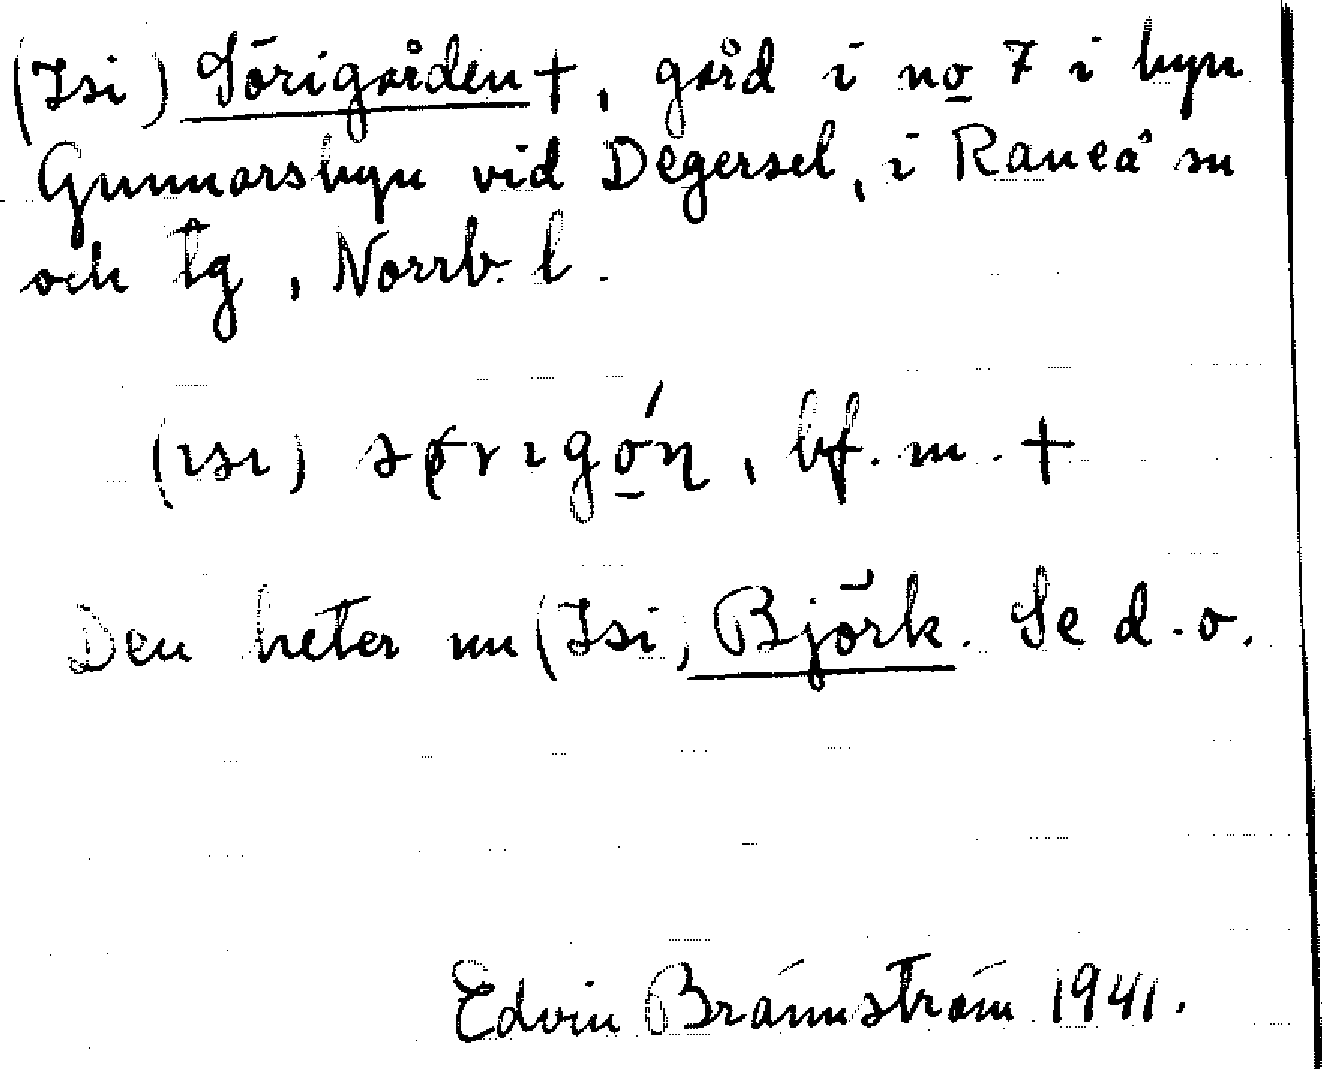 (Isi) Sörigården +, gård i no 7 i byn
Gunnarsbyn vid Degersel, i Raneå sn
och tg, Norrb. l.
(ısı) sørıgó̱n, bf. m. +
Den heter nu (Isi) Björk. Se d. o.
Edvin Brännström 1941.